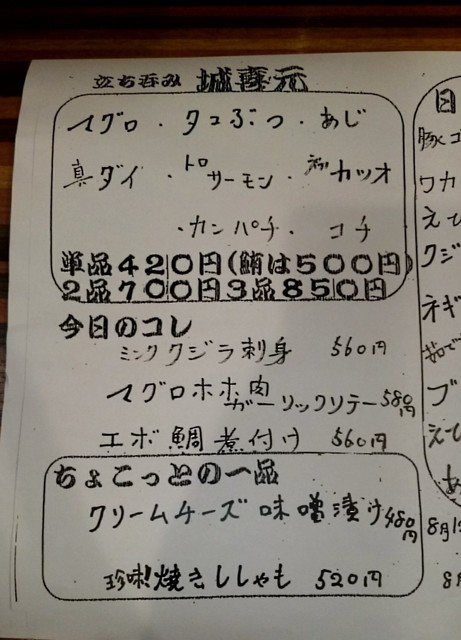 立ち呑み 城蔵元
マグロ・タコぶつ・あじ
真ダイ・トロサーモン・カツオ
・カンパチ・コチ
単品420円(鮪は500円)
2品700円3品850円
今日のコレ
ミンククジラ刺身 560円
マグロホホ肉
ガーリックソテー580円
エボ鯛煮付け 560円
ちょこっとの一品
クリームチーズ味噌漬け480円
珍味!焼きししゃも 520円
日
豚
ワカ
えび
クジ
ネギ
ブ
えび
あ
8月1
8月